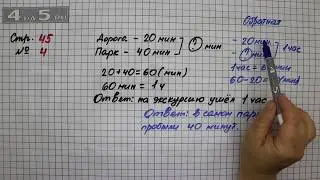 4 an 5.ru
Стр. 45
№ 4
Дорога - 20 мин
Парк - 40 мин
? мин
20+40=60(мин)
60 мин = 1 ч
Ответ: на экскурсию ушёл 1 час
Обратная
- 20 мин
- ? мин
1 час
1 час = 6
60-20= (мин)
Ответ: в самом пар
пробыли 40 минут.